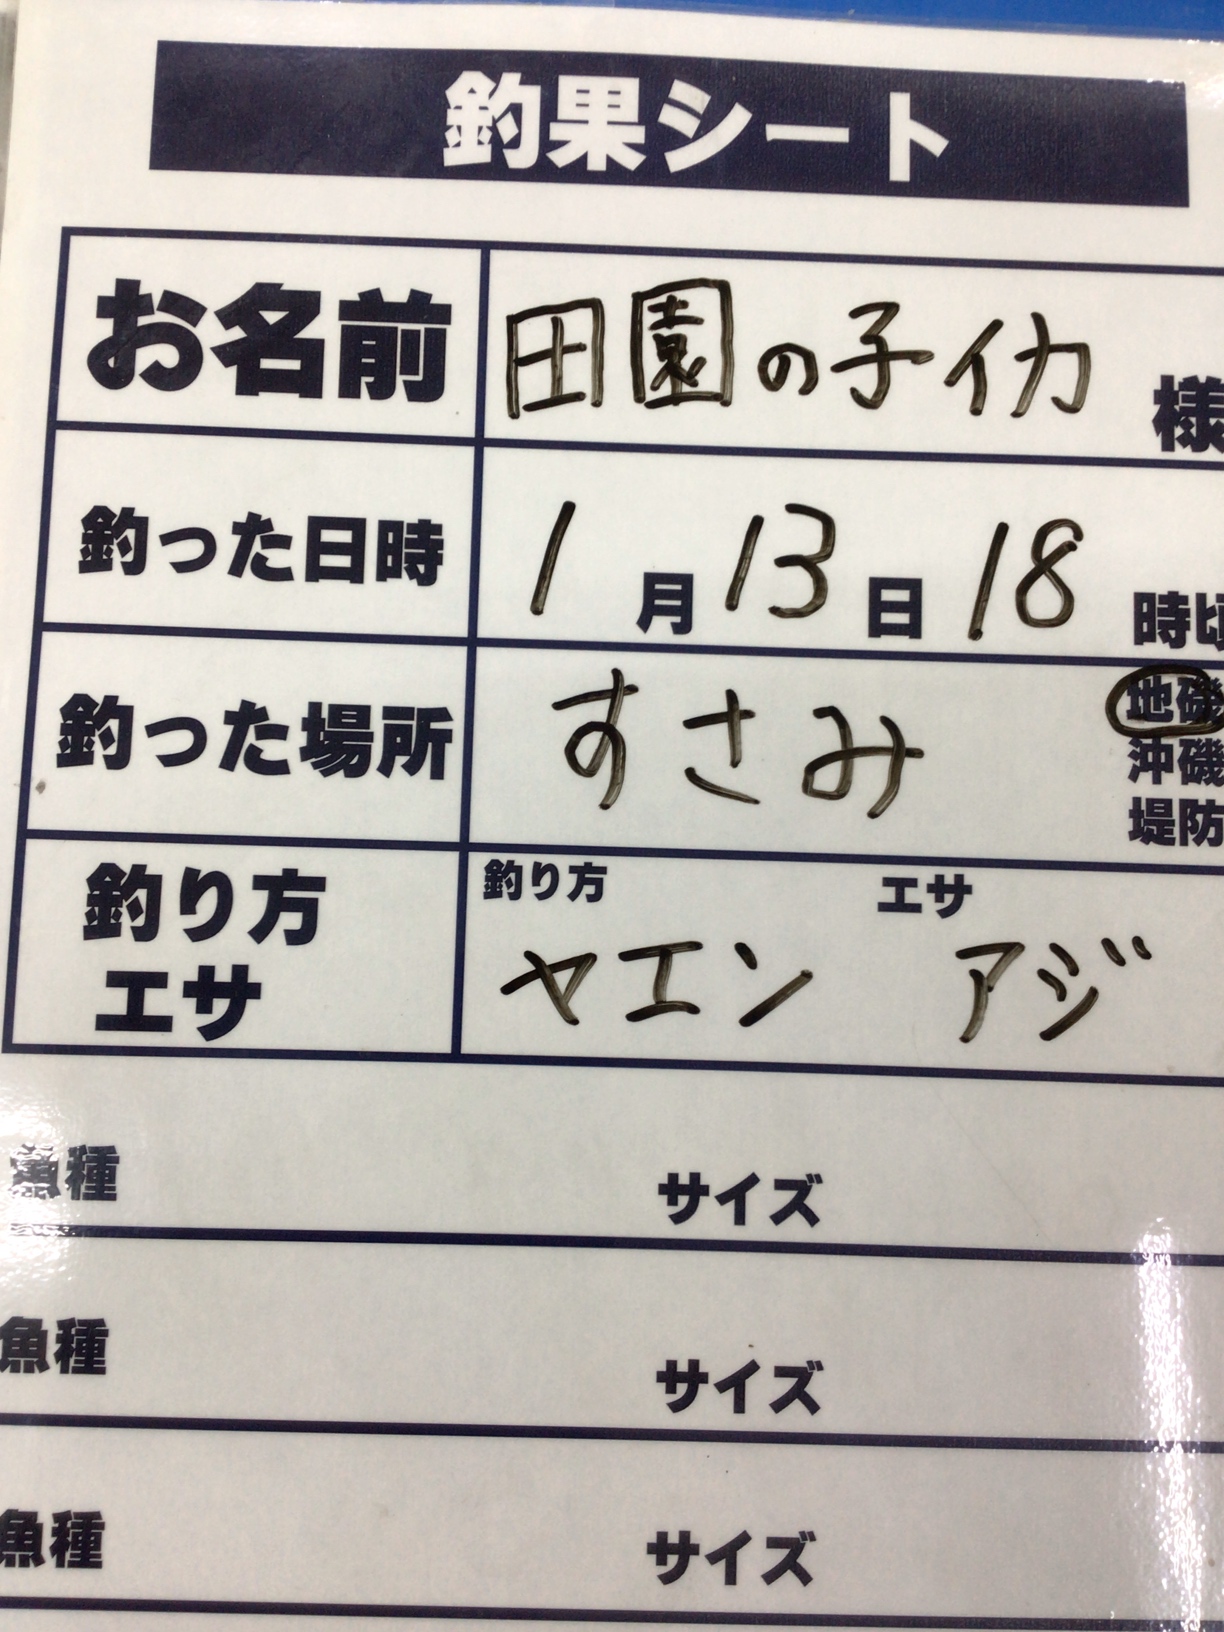 釣果シート
お名前 田園の子イカ 様
釣った日時 1月13日18時頃
釣った場所 すさみ 地磯
沖磯
堤防
釣り方 エサ
釣り方 エサ
ヤエン アジ
魚種 サイズ
魚種 サイズ
魚種 サイズ